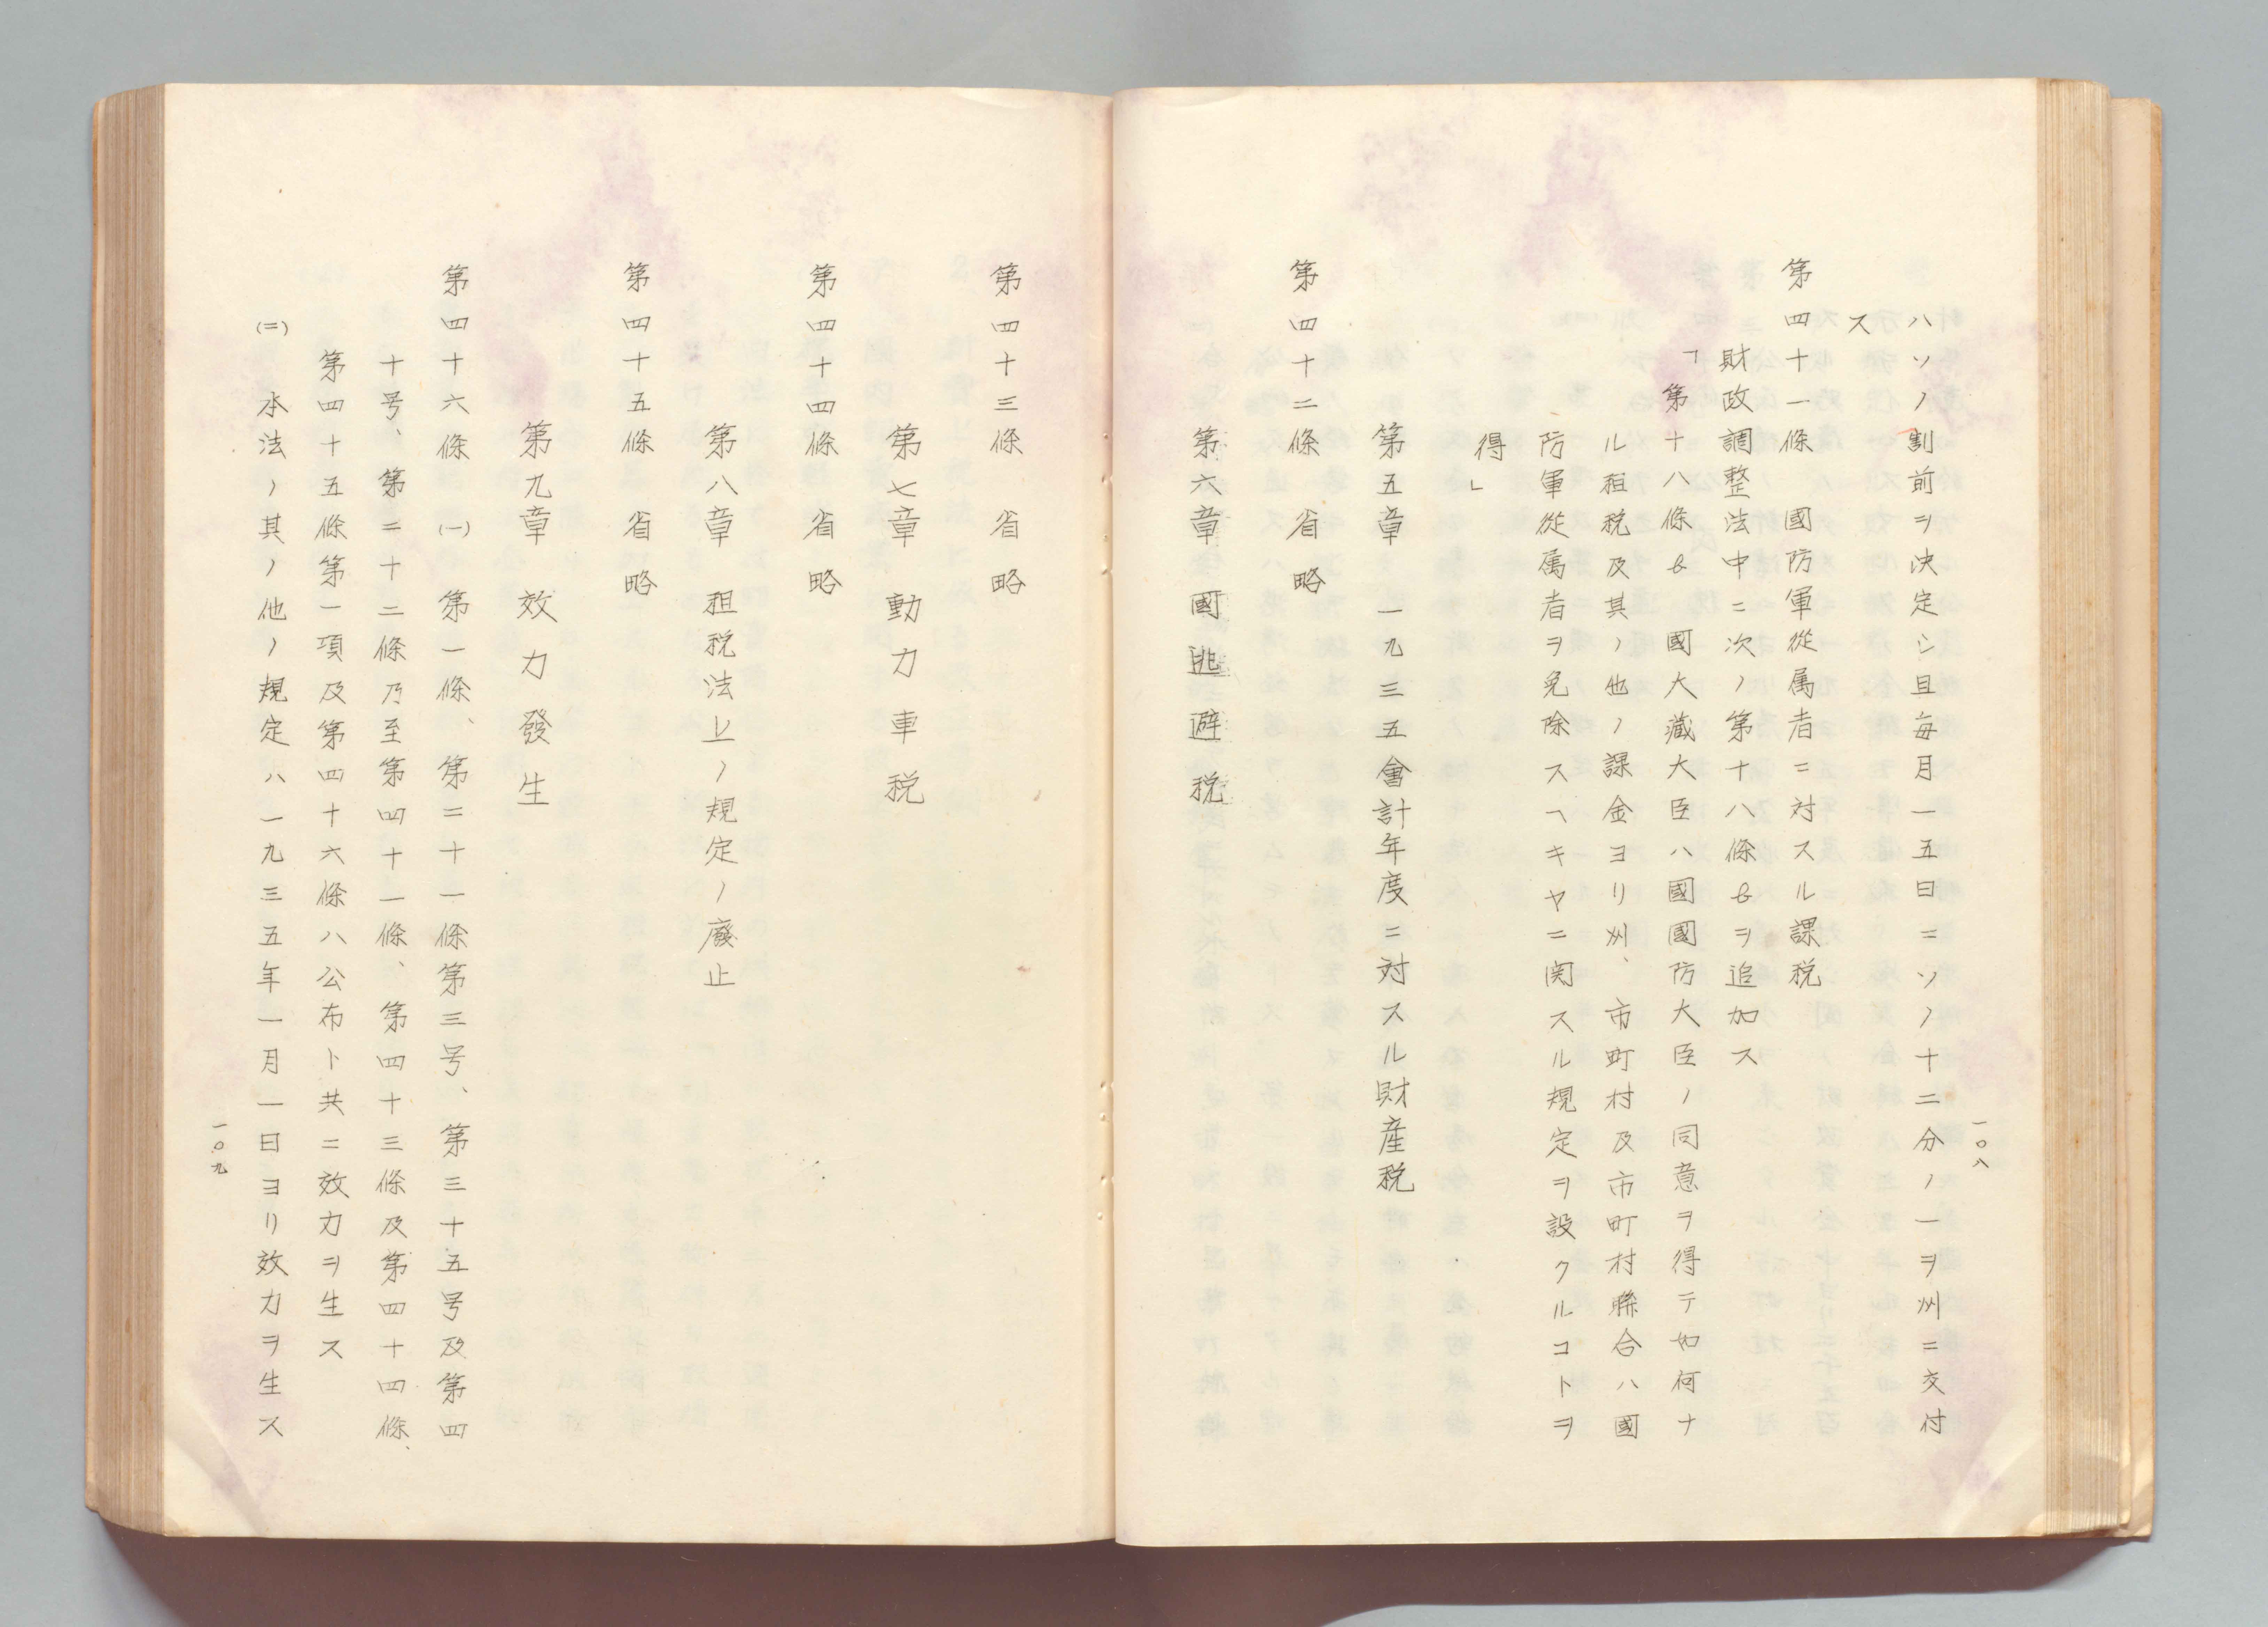 ハソノ割前ヲ決定シ且每月一五日ニソノ十二分ノ一ヲ州ニ交付
ス
第四十一條　國防軍從属者ニ対スル課税
財政調整法中ニ次ノ第十八條bヲ追加ス
「第十八條b　國大藏大臣ハ國國防大臣ノ同意ヲ得テ如何ナ
ル租税及其ノ他ノ課金ヨリ州、市町村及市町村聯合ハ國
防軍從属者ヲ免除スヘキヤニ関スル規定ヲ設クルコトヲ
得」
第五章　一九三五會計年度ニ対スル財産税
第四十二條　省略
第六章　國逃避税
一〇八
第四十三條　省略
第七章　動力車税
第四十四條　省略
第八章　租税法上ノ規定ノ廢止
第四十五條　省略
第九章　效力發生
第四十六條　(一)　第一條、第二十一條第三号、第三十五号及第四
十号、第二十二條乃至第四十一條、第四十三條及第四十四條、
第四十五條第一項及第四十六條ハ公布ト共ニ效力ヲ生ス
(二)　本法ノ其ノ他ノ規定ハ一九三五年一月一日ヨリ效力ヲ生ス
一〇九